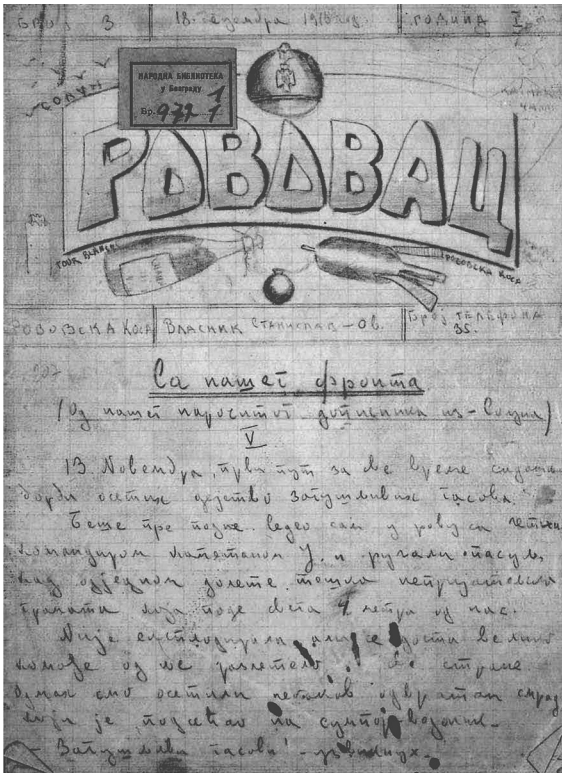 БРОЈ 3
18. децембра 1916 год.
ГОДИНА I
СОЛУН
НАРОДНА БИБЛИОТЕКА
у Београду
Бр. 972 1
1
РОВОВАЦ
TOUR BLANCHE
РОВОВСКА КОСА
РОВОВСКА КОСА
ВЛАСНИК СТАНИСЛАВ-ОВ.
БРОЈ ТЕЛЕФОНА
35.
Са нашег фронта
(Од нашег нарочитог дописника из-Солуна)
V
13. Новембра, први пут за све време
осетих дејство загушљивих гасова.
Беше пре подне. Седео сам у рову са четним
командиром капетаном Ј. и ручали пасуљ,
кад одједном долете тешка непријатељска
граната која паде света 4 метра од нас.
Није експлодирала, али се доста велико
комађе од ње разлетело све стране.
Одмах смо осетили некаков одвратан смрад
који је подсећао на сумпор-водоник.
- Загушљиви гасови! - узвикнух.